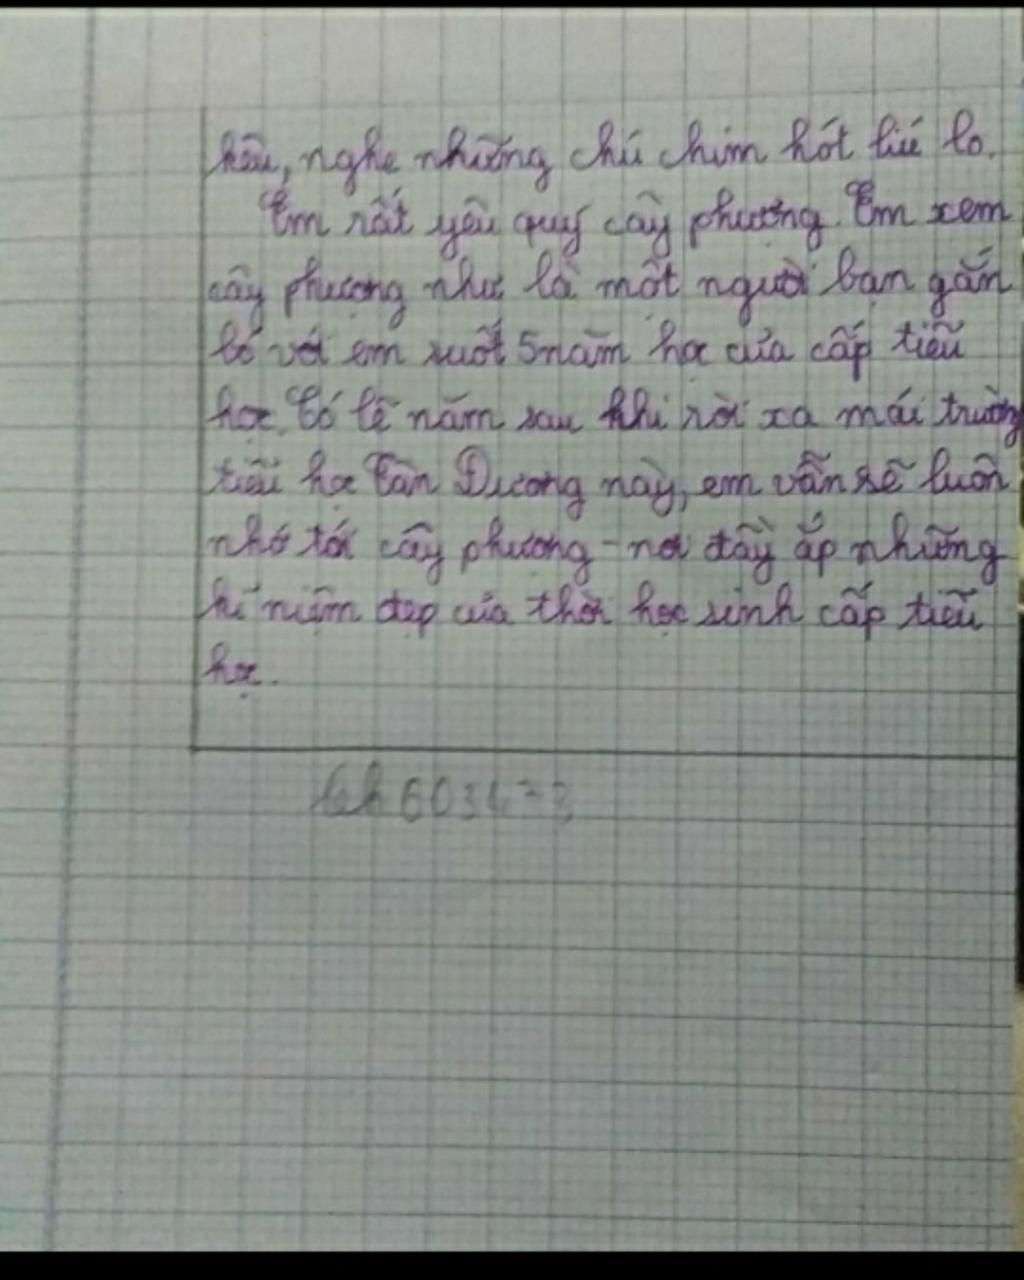 nghe những chú chim hót líu lo.
Em rất yêu quý cây phượng. Em xem
cây phượng như là một người bạn gắn
bó với em suốt 5 năm học của cấp tiểu
học. Có lẽ năm sau khi rời xa mái trường
tiểu học Tân Dương này, em vẫn sẽ luôn
nhớ tới cây phượng - nơi đầy ắp những
kỉ niệm đẹp của thời học sinh cấp tiểu
học.